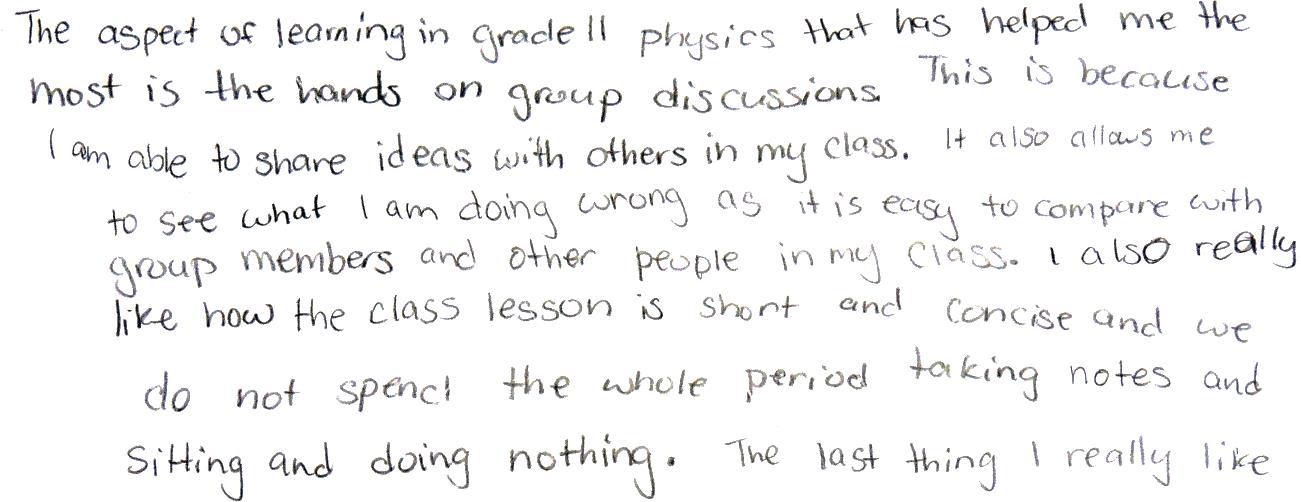 The aspect of learning in grade 11 physics that has helped me the
most is the hands on group discussions. This is because
I am able to share ideas with others in my class. It also allows me
to see what I am doing wrong as it is easy to compare with
group members and other people in my class. I also really
like how the class lesson is short and concise and we
do not spend the whole period taking notes and
sitting and doing nothing. The last thing I really like